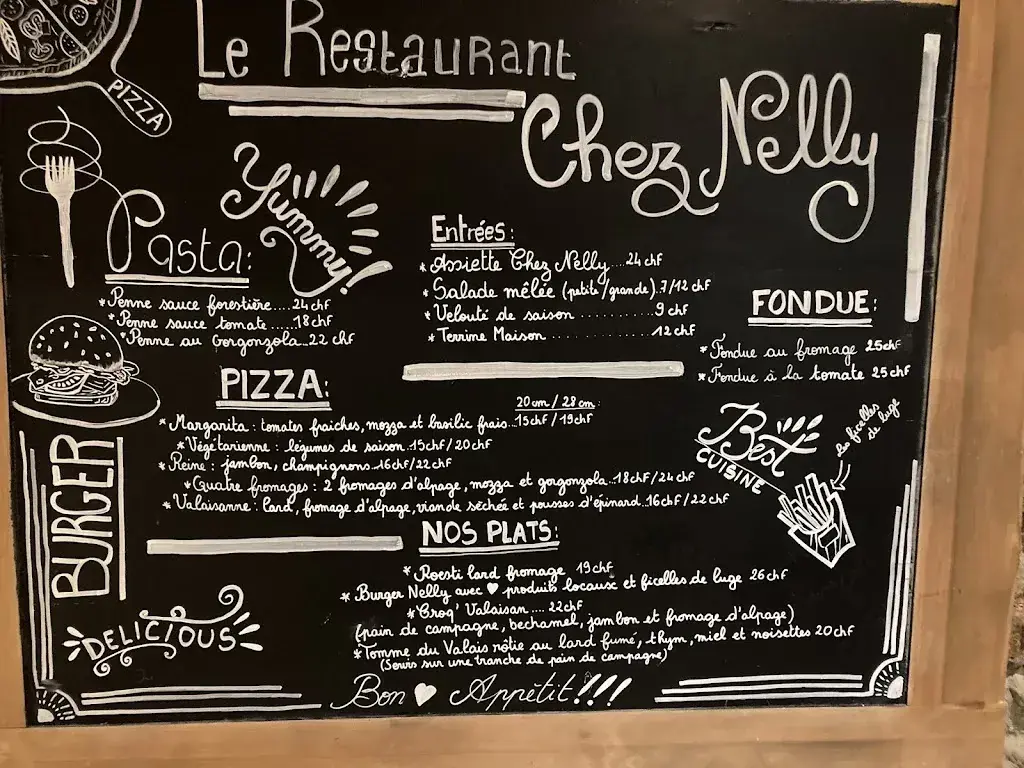 PIZZA
Le Restaurant
Chez Nelly
Yummy!
Pasta:
*Penne sauce forestière....24 chf
*Penne sauce tomate .....18 chf
*Penne au Gorgonzola...22 chf
Entrées:
*Assiette Chez Nelly....24 chf
*Salade mêlée (petite/grande).7/12 chf
*Velouté de saison ..........9 chf
*Terrine Maison ..........12 chf
FONDUE:
*Fondue au fromage 25chf
*Fondue à la tomate 25 chf
PIZZA:
20cm / 28cm:
*Margarita: tomates fraiches, mozza et basilic frais...15chf / 19chf
*Végétarienne : légumes de saison..15chf/20chf
*Reine : jambon, champignons...16chf/22chf
*Quatre fromages : 2 fromages d'alpage, mozza et gorgonzola..18chf/24chf
*Valaisanne : lard, fromage d'alpage, viande séchée et pousses d'épinard..16chf/22chf
Best
CUISINE
les ficelles
de luge
BURGER
DELICIOUS
NOS PLATS:
*Roesti lard fromage 19chf
*Burger Nelly avec ♥ produits locaux et ficelles de luge 26chf
*Croq' Valaisan .... 22chf
(pain de campagne, bechamel, jambon et fromage d'alpage)
*Tomme du Valais rôtie au lard fumé, thym, miel et noisettes 20chf
(Servis sur une tranche de pain de campagne)
Bon ♥ Appétit!!!